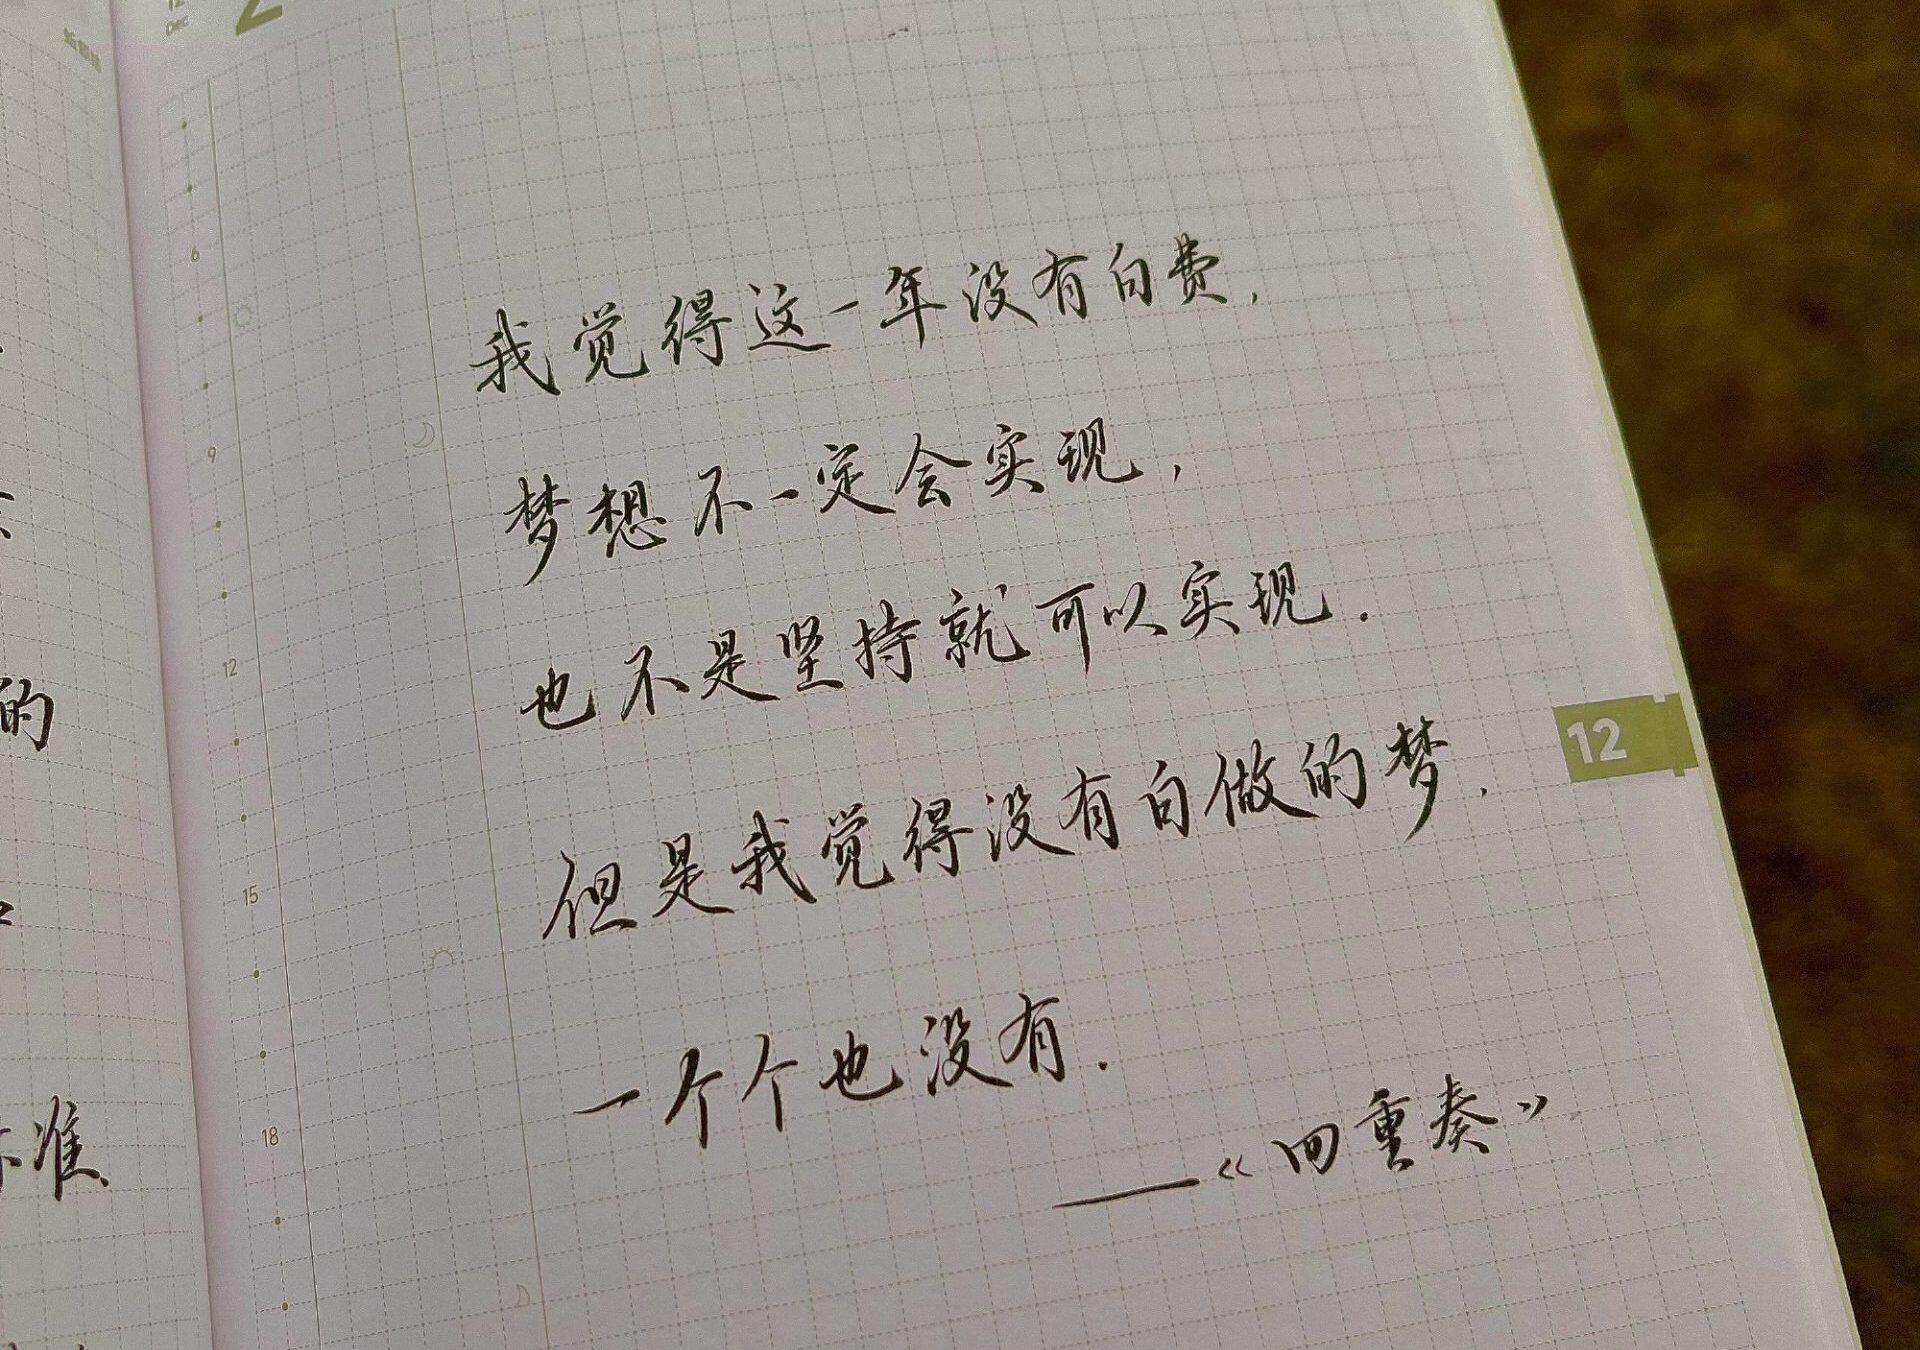 12
Dec
2
6
9
12
15
18
我觉得这一年没有白费,
梦想不一定会实现,
也不是坚持就可以实现.
但是我觉得没有白做的梦.
一个个也没有.
——《四重奏》
12
的
准